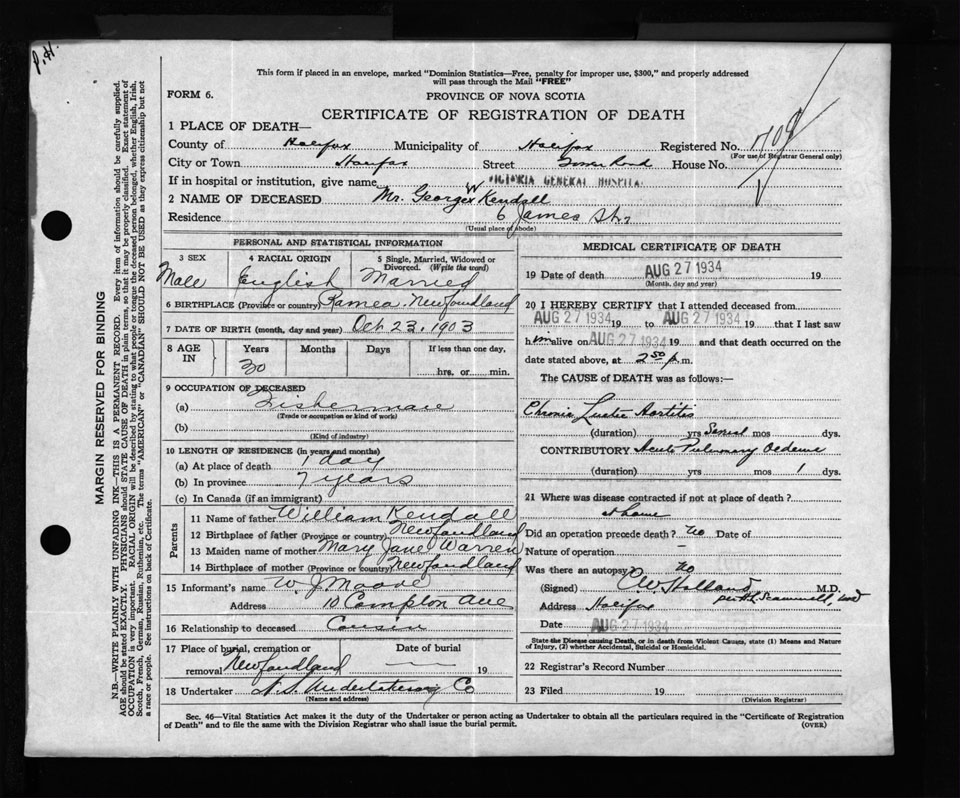 P.H.
This form if placed in an envelope, marked "Dominion Statistics—Free, penalty for improper use, $300," and properly addressed
will pass through the Mail "FREE"
FORM 6.
PROVINCE OF NOVA SCOTIA
CERTIFICATE OF REGISTRATION OF DEATH
709
1 PLACE OF DEATH—
County of Halifax Municipality of Halifax Registered No.
(For use of Registrar General only)
City or Town Halifax Street Tower Road House No.
If in hospital or institution, give name VICTORIA GENERAL HOSPITAL
2 NAME OF DECEASED Mr. George W Kendall
Residence 6 James St.
(Usual place of abode)
PERSONAL AND STATISTICAL INFORMATION
3 SEX
Male
4 RACIAL ORIGIN
English
5 Single, Married, Widowed or
Divorced. (Write the word)
Married
6 BIRTHPLACE (Province or country) Ramea. Newfoundland
7 DATE OF BIRTH (month, day and year) Oct 23, 1903
8 AGE
IN
Years Months Days If less than one day,
30
hrs. or min.
9 OCCUPATION OF DECEASED
(a) Fisherman
(Trade or occupation or kind of work)
(b)
(Kind of industry)
10 LENGTH OF RESIDENCE (in years and months)
(a) At place of death 1 day
(b) In province 7 years
(c) In Canada (if an immigrant)
Parents
11 Name of father William Kendall
12 Birthplace of father (Province or country) Newfoundland
13 Maiden name of mother Mary Jane Warren
14 Birthplace of mother (Province or country) Newfoundland
15 Informant's name W J Moore
Address 10 Compton Ave
16 Relationship to deceased Cousin
17 Place of burial, cremation or
removal Newfoundland
Date of burial
19
18 Undertaker N.S. Undertaking Co
(Name and address)
MEDICAL CERTIFICATE OF DEATH
19 Date of death AUG 27 1934 19
(Month, day and year)
20 I HEREBY CERTIFY that I attended deceased from
AUG 27 1934 19 to AUG 27 1934 19 that I last saw
him alive on AUG 27 1934 19 and that death occurred on the
date stated above, at 2.50 p.m.
The CAUSE of DEATH was as follows:—
Chronic Luetic Aortitis
(duration) yrs Several mos dys.
CONTRIBUTORY Acute Pulmonary Oedema
(duration) yrs mos 1 dys.
21 Where was disease contracted if not at place of death?
at home
Did an operation precede death? no Date of
Nature of operation —
Was there an autopsy? no
(Signed) C W Holland M.D.
Address Halifax
Date AUG 27 1934
State the Disease causing Death, or in death from Violent Causes, state (1) Means and Nature
of Injury, (2) whether Accidental, Suicidal or Homicidal.
22 Registrar's Record Number
23 Filed 19
(Division Registrar)
Sec. 46—Vital Statistics Act makes it the duty of the Undertaker or person acting as Undertaker to obtain all the particulars required in the "Certificate of Registration
of Death" and to file the same with the Division Registrar who shall issue the burial permit.
(OVER)
MARGIN RESERVED FOR BINDING
N.B.—WRITE PLAINLY WITH UNFADING INK—THIS IS A PERMANENT RECORD. Every item of information should be carefully supplied.
AGE should be stated EXACTLY. PHYSICIANS should STATE CAUSE OF DEATH in plain terms, so that it may be properly classified. Exact statement of
OCCUPATION is very important. RACIAL ORIGIN will be described by stating to what people or tongue the deceased person belonged, whether English, Irish,
Scotch, French, German, Russian, Ruthenian, etc. The terms "AMERICAN" or "CANADIAN" SHOULD NOT BE USED as they express citizenship but not
a race or people. See instructions on back of Certificate.